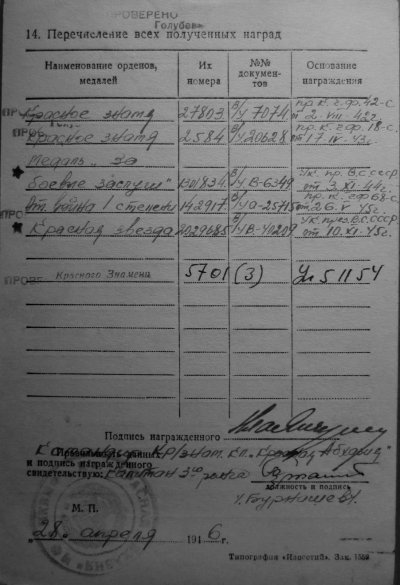 ПРОВЕРЕНО
Голубев
14. Перечисление всех полученных наград
Наименование орденов, медалей
Их номера
№№ документов
Основание награждения
Красное знамя 27803 в/у 7074 пр. к. ч. ф. 42-с от 2. VIII-42 г.
Красное знамя 2584 в/у 20628 пр. к. ч. ф. 18-с. от 17. IV-43 г.
Медаль „За
боевые заслуги" 1301834 в/у В-6349 Ук. пр. В.С. СССР от 3. XI-44 г.
От. война I степени 142917 в/у 25715 пр. к. ч. ф. 68-с от 26. V 45 г.
Красная звезда 2029685 в/у В-41209 Ук. през. В.С. СССР от 10. XI-45 г.
ПРОВЕ
Красного Знамени 5701 (3) Ук 5 11 54
Подпись награжденного
Правильность данных
и подпись награжденного
свидетельствую: капитан 3го ранга
должность и подпись
М. П.
„28" апреля 1946 г.
Типография «Известий». Зак. 1559